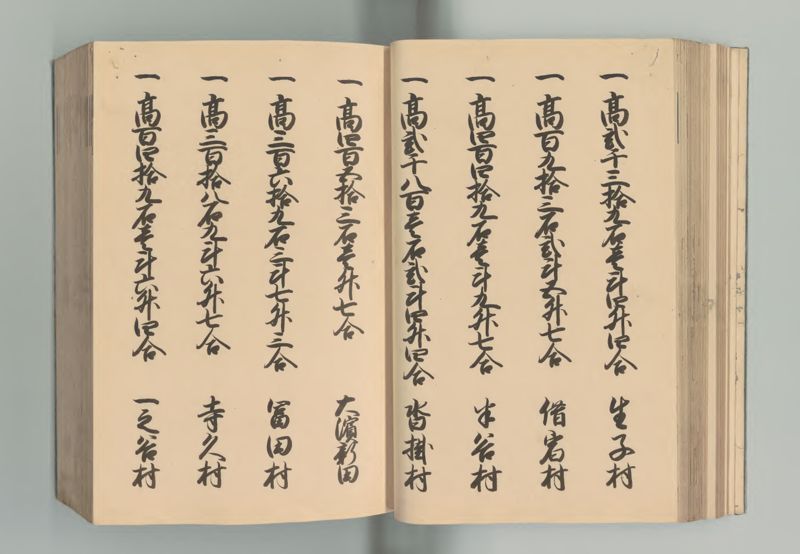 一高弐千三拾九石壱斗四升四合 生子村
一高百九拾三石弐斗五升七合 借宿村
一高四百四拾九石壱斗九升七合 半谷村
一高弐千八百壱石弐斗四升四合 沓掛村
一高四百五拾三石壱升七合 大濱新田
一高三百六拾九石三斗七升三合 冨田村
一高三百拾八石九斗六升七合 寺久村
一高百四拾九石壱斗六升四合 一之谷村